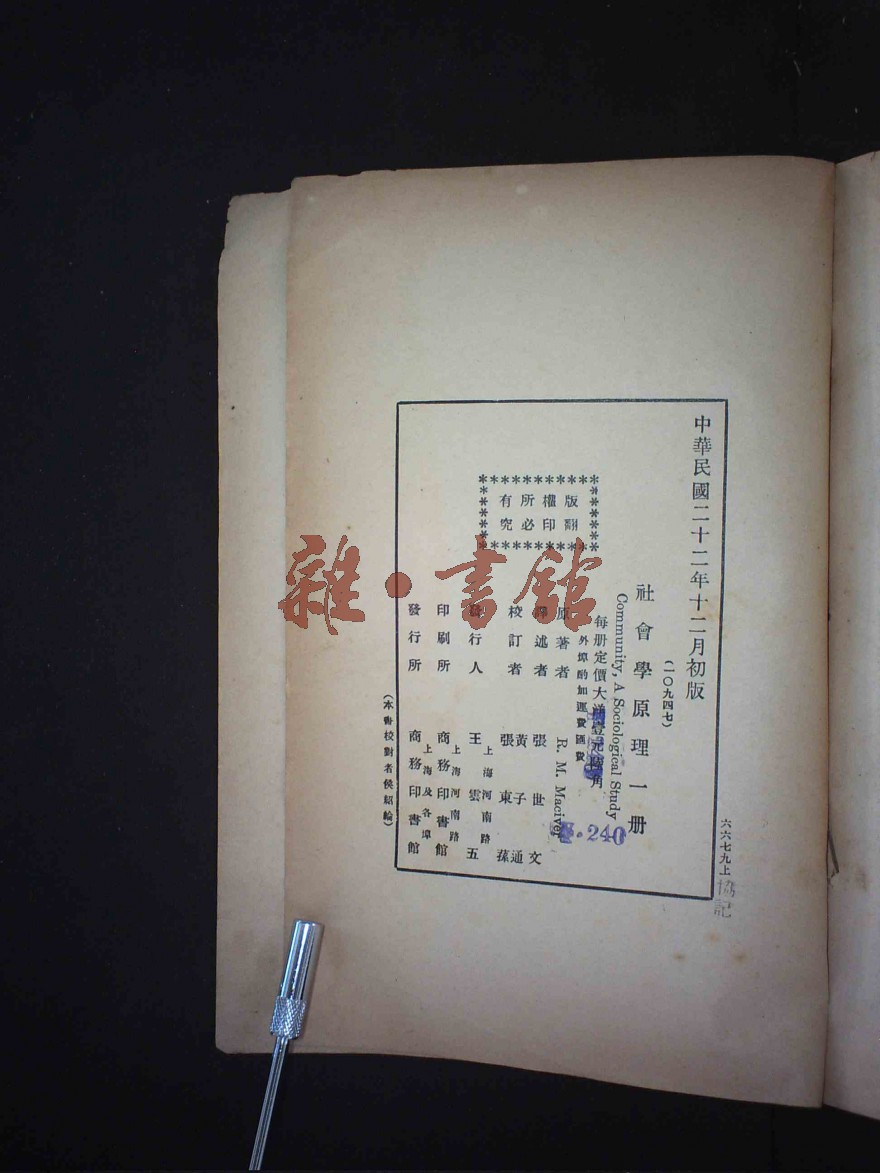 中華民國二十二年十二月初版
(一〇九四七)
社會學原理一册
Community, A Sociological Study
每册定價大洋壹元陸角
外埠酌加運費匯費
版權所有
翻印必究
原著者 R. M. Maciver
譯述者 張世文
校訂者 黃子通 張東蓀
發行人 王雲五
上海河南路
印刷所 商務印書館
上海河南路
發行所 商務印書館
上海及各埠
(本書校對者侯紹綸)
六六七九上
協記
.240
雜·書館